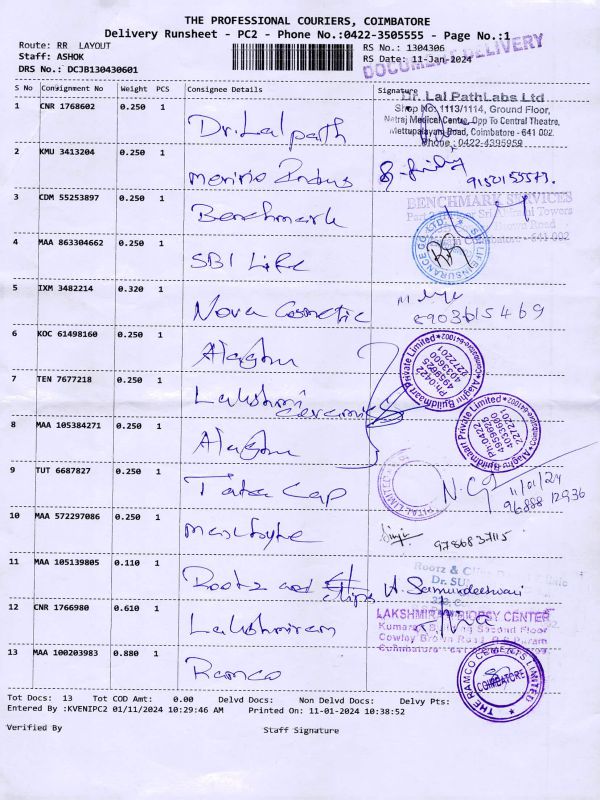 THE PROFESSIONAL COURIERS, COIMBATORE
Delivery Runsheet - PC2 - Phone No.:0422-3505555 - Page No.:1
Route: RR LAYOUT RS No.: 1304306
Staff: ASHOK RS Date: 11-Jan-2024
DOCUMENT DELIVERY
DRS No.: DCJB130430601
S No Consignment No Weight PCS Consignee Details Signature
Dr. Lal PathLabs Ltd
Shop No: 1113/1114, Ground Floor,
Netraj Medical Centre, Opp To Central Theatre,
Mettupalayam Road, Coimbatore - 641 002.
Phone : 0422-4395959
1 CNR 1768602 0.250 1 Dr. Lal path
2 KMU 3413204 0.250 1 9150155573.
3 CDM 55253897 0.250 1 Benchmark
BENCHMARK SERVICES
Coimbatore - 641 002
4 MAA 863304662 0.250 1 SBI Life
5 IXM 3482214 0.320 1 Nova Cosmetic
8903615469
6 KOC 61498160 0.250 1 Alaghu
Alaghu Buildmaari Private Limited
Coimbatore-641002
Ph.0422
4959625
4033600
2272201
7 TEN 7677218 0.250 1 Lakshmi ceramics
8 MAA 105384271 0.250 1 Alaghu
Alaghu Buildmaari Private Limited
Coimbatore-641002
Ph.0422
4959625
4033600
2272201
9 TUT 6687827 0.250 1 Tata Cap
11/01/24
96888 12936
10 MAA 572297086 0.250 1
9786837115
11 MAA 105139805 0.110 1 Rootz and
Rootz &
Dr.
12 CNR 1766980 0.610 1 Lakshmiram
LAKSHMIRAM BIOPSY CENTER
Second Floor
Cowley Brown Road, R.S. Puram
Coimbatore - 641 002.
13 MAA 100203983 0.880 1 Ramco
THE RAMCO CEMENTS LIMITED
COIMBATORE
Tot Docs: 13 Tot COD Amt: 0.00 Delvd Docs: Non Delvd Docs: Delvy Pts:
Entered By :KVENIPC2 01/11/2024 10:29:46 AM Printed On: 11-01-2024 10:38:52
Verified By Staff Signature